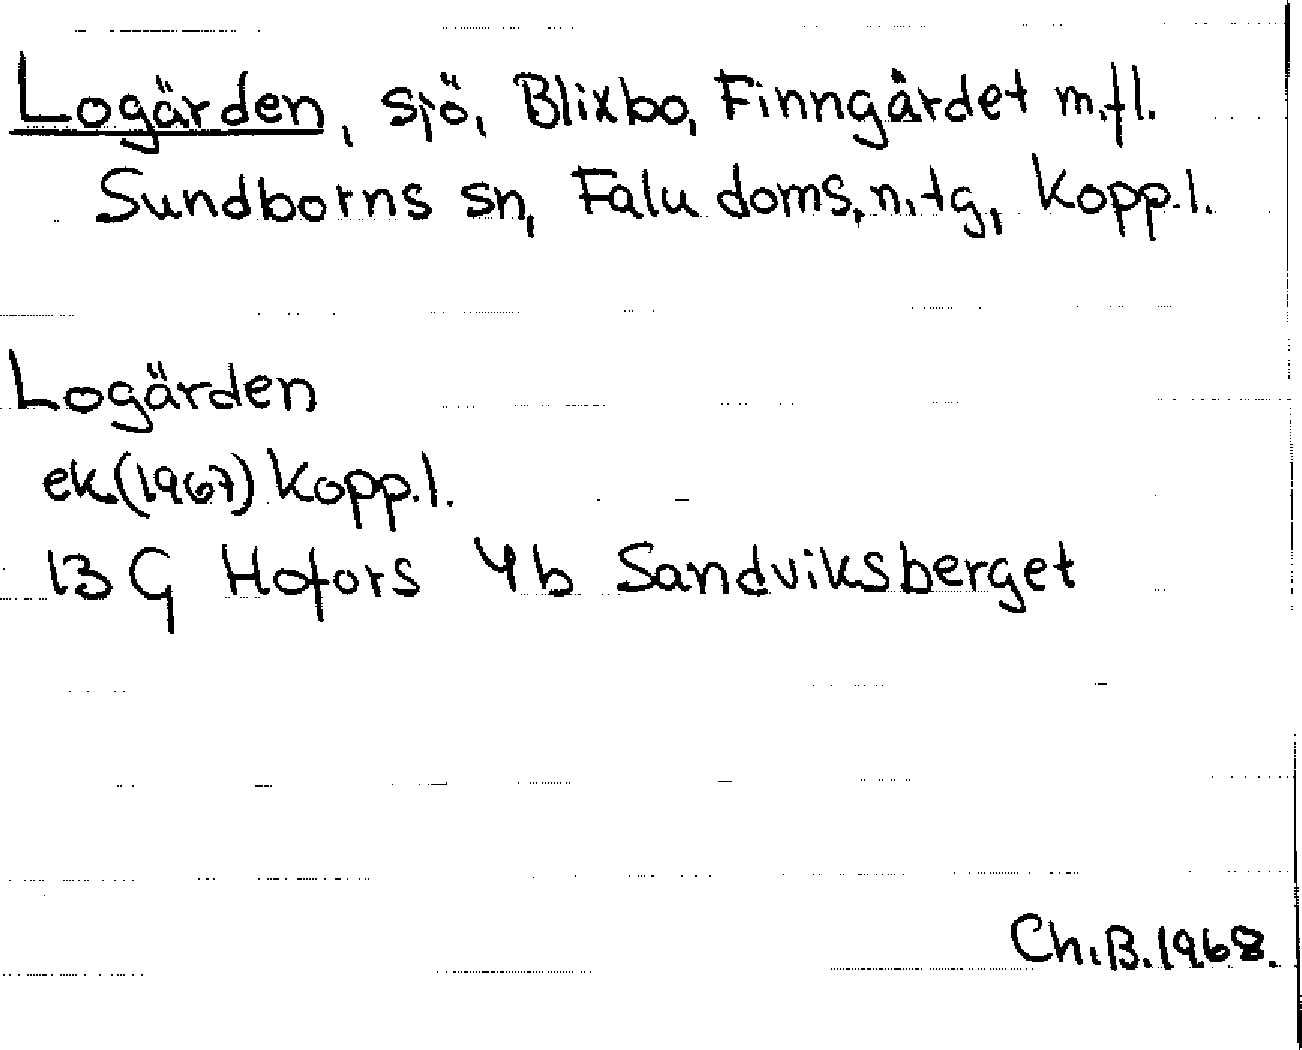 Logärden, sjö, Blixbo, Finngårdet m.fl.
Sundborns sn, Falu doms.n.tg, Kopp.l.
Logärden
ek.(1967) Kopp.l.
13 G Hofors 4b Sandviksberget
Ch.B.1968.